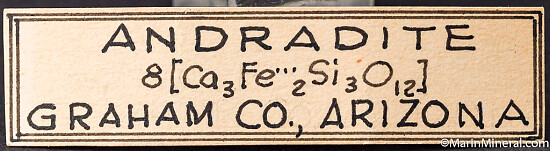 ANDRADITE
8[Ca₃Fe‴₂Si₃O₁₂]
GRAHAM CO., ARIZONA
©MarinMineral.com